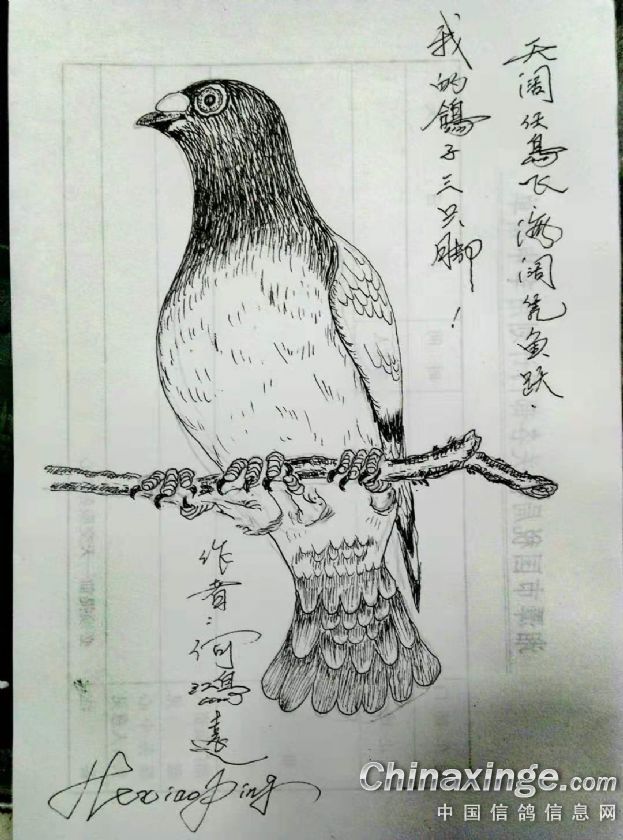 天阔任鸟飞海阔凭鱼跃.
我的鸽子三只脚!
作者:何鸿遠
Chinaxinge.com
中国信鸽信息网